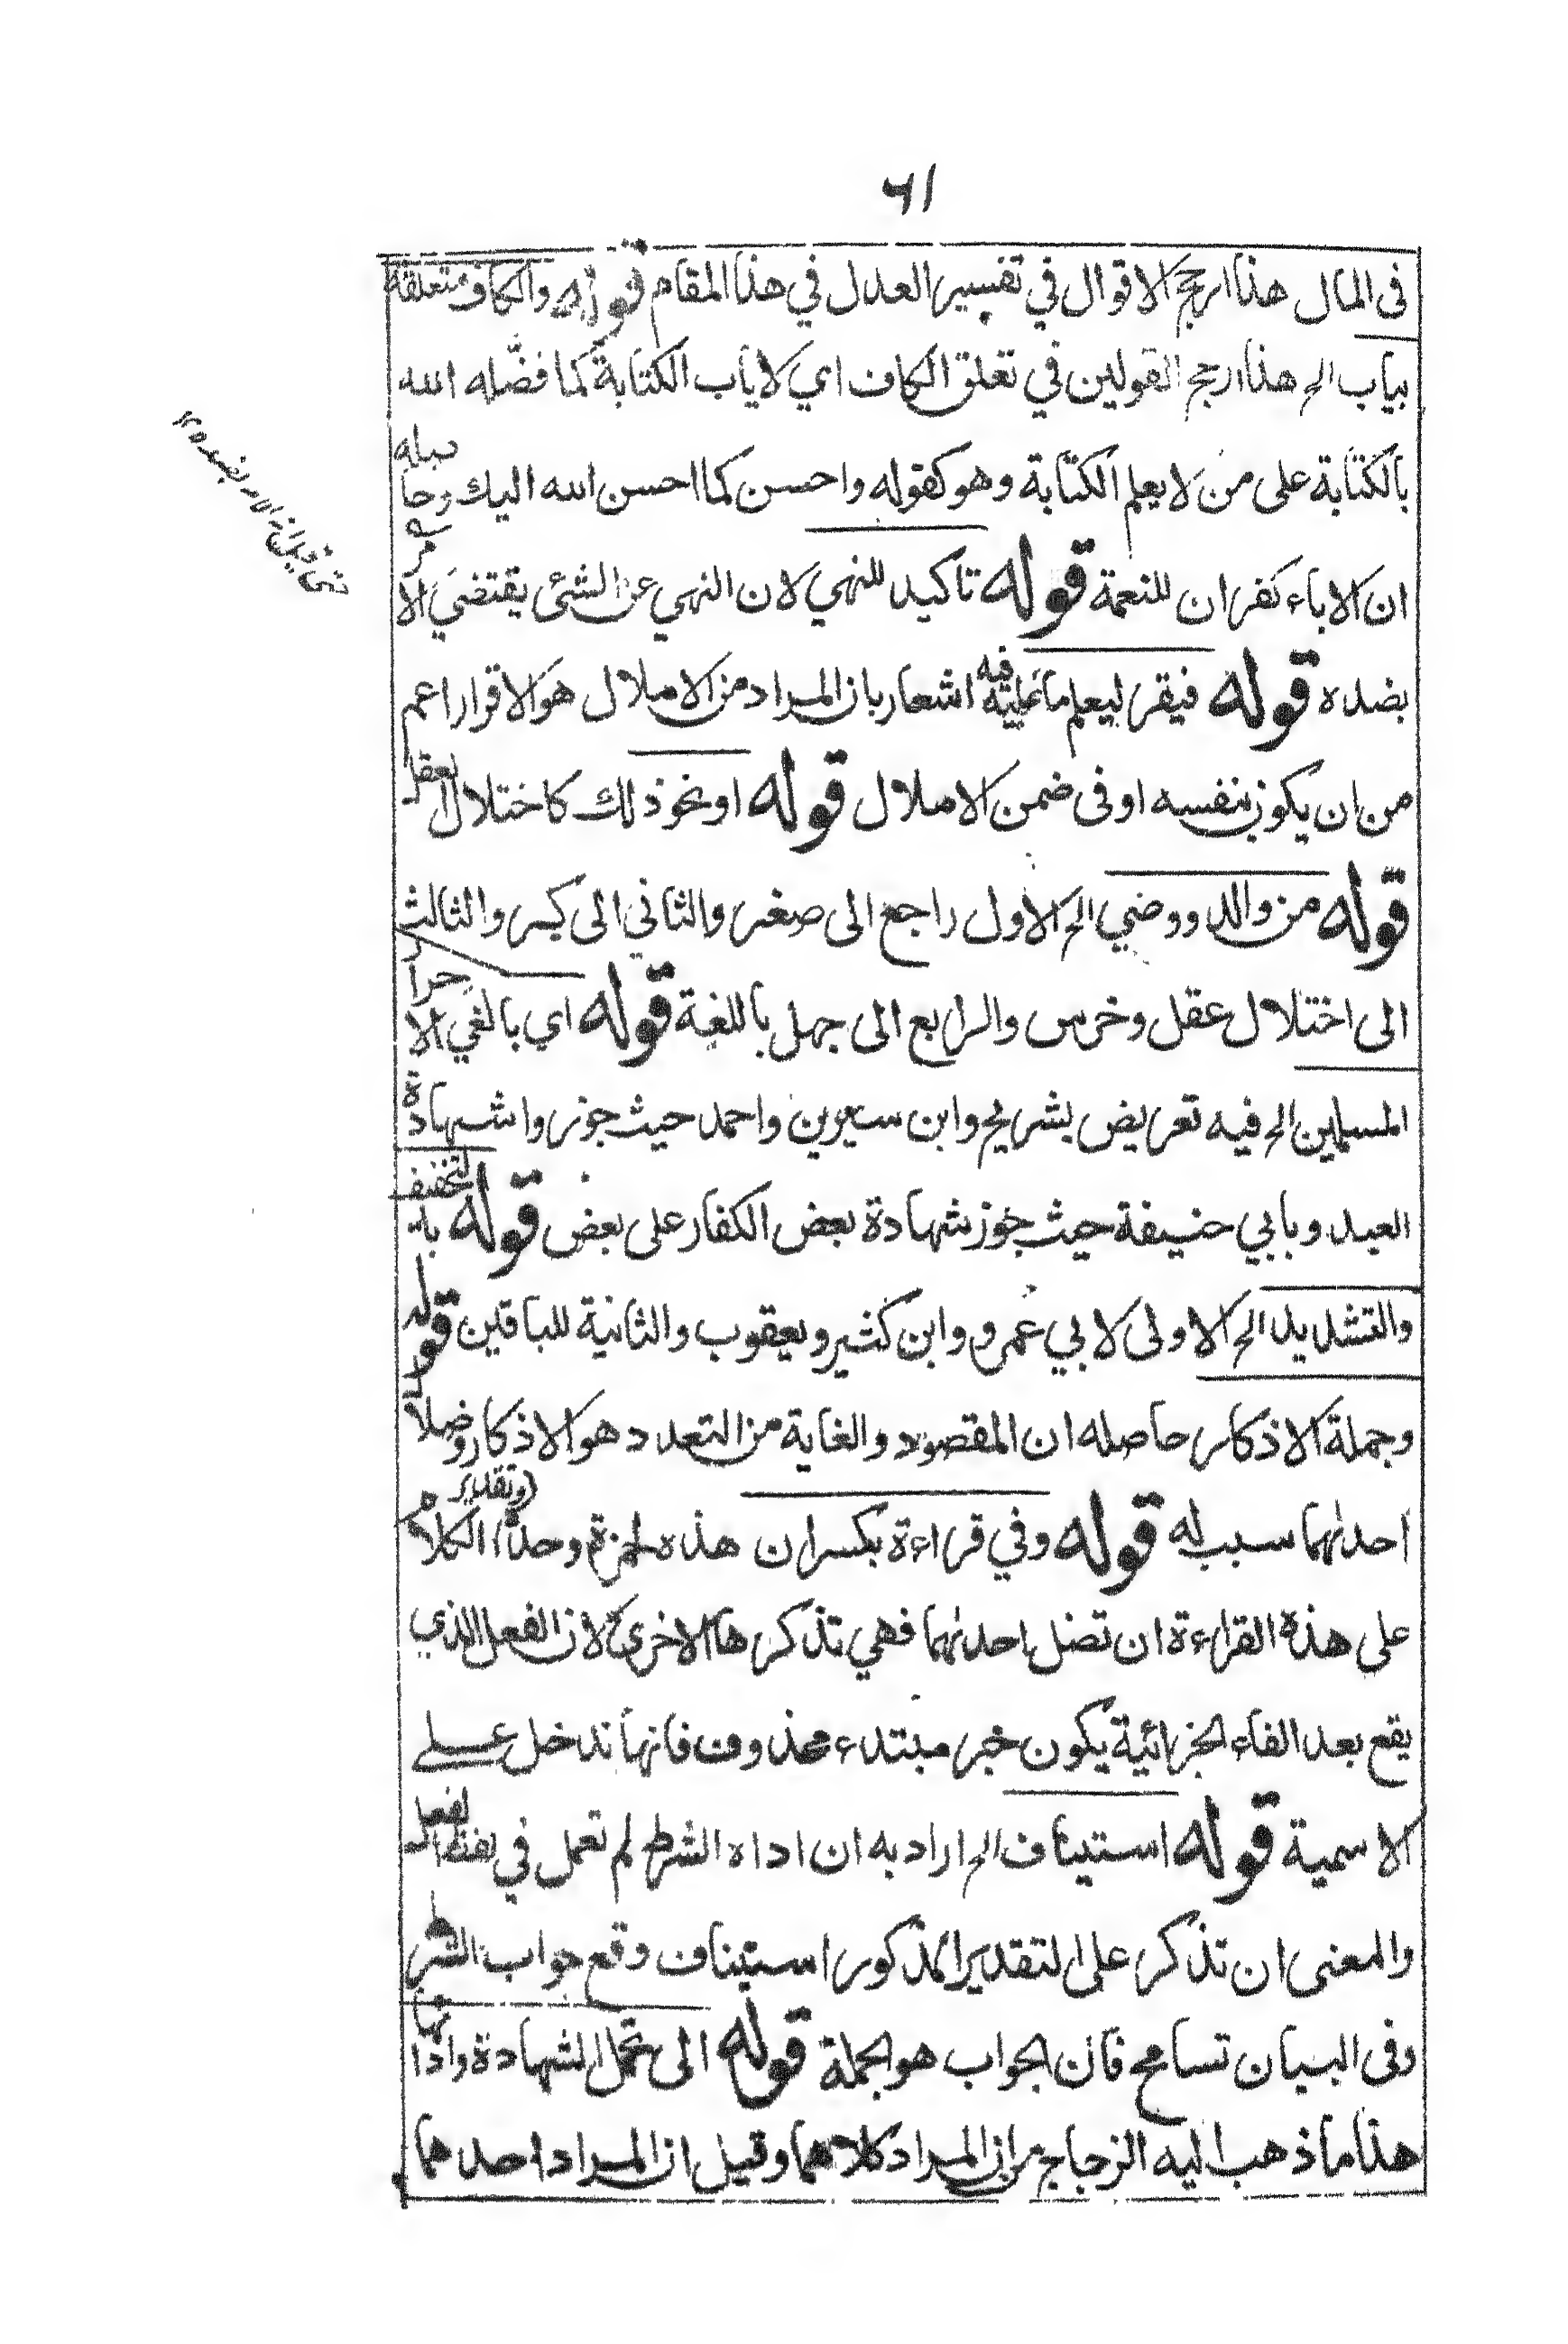 ٦١
فى المال هذا ارجح الاقوال في تفسير العدل في هذا المقام قوله والكاف متعلقة
بياب الخ هذا ارجح القولين في تعلق الكاف اي لا ياب الكتابة كما فضّله الله
بالكتابة على من لا يعلم الكتابة وهو كقوله واحسن كما احسن الله اليك وحاصله
ان الاباء كفران للنعمة قوله تاكيد للنهي لان النهي عن الشئ يقتضي الامر
بضده قوله فيقر ليعلم ما عليه فيه اشعار بان المراد من الاملال هو الاقرار اعم
من ان يكون بنفسه او فى ضمن الاملال قوله او نحو ذلك كاختلال العقل
قوله من والد ووصي الخ الاول راجع الى صغر والثاني الى كبر والثالث
الى اختلال عقل وخرس والرابع الى جهل باللغة قوله اي بالغي الاحرار
المسلمين الخ فيه تعريض بشريح وابن سيرين واحمد حيث جوزوا شهادة
العبد وبابي حنيفة حيث جوز شهادة بعض الكفار على بعض قوله بالتخفيف
والتشديد الخ الاولى لابي عمرو وابن كثير ويعقوب والثانية للباقين قوله
وجملة الاذكار حاصله ان المقصود والغاية من التعدد هو الاذكار وضلال
احدٰىهما سبب له قوله وفي قراءة بكسر ان هذه لحمزة وحده (وتقدير) الكلام
على هذه القراءة ان تضل احدٰىهما فهي تذكرها الاخرى لان الفعل الذي
يقع بعد الفاء الجزائية يكون خبر مبتدء محذوف فانها تدخل على
الاسمية قوله استيناف الخ اراد به ان اداه الشرط لم تعمل في لفظ الفعل
والمعنى ان تذكر على التقدير المذكور استيناف وقع جواب الشرط
وفى البيان تسامح فان الجواب هو الجملة قوله الى تحمل الشهادة وادائها
هذا ما ذهب اليه الزجاج من ان المراد كلاهما وقيل ان المراد احدهما